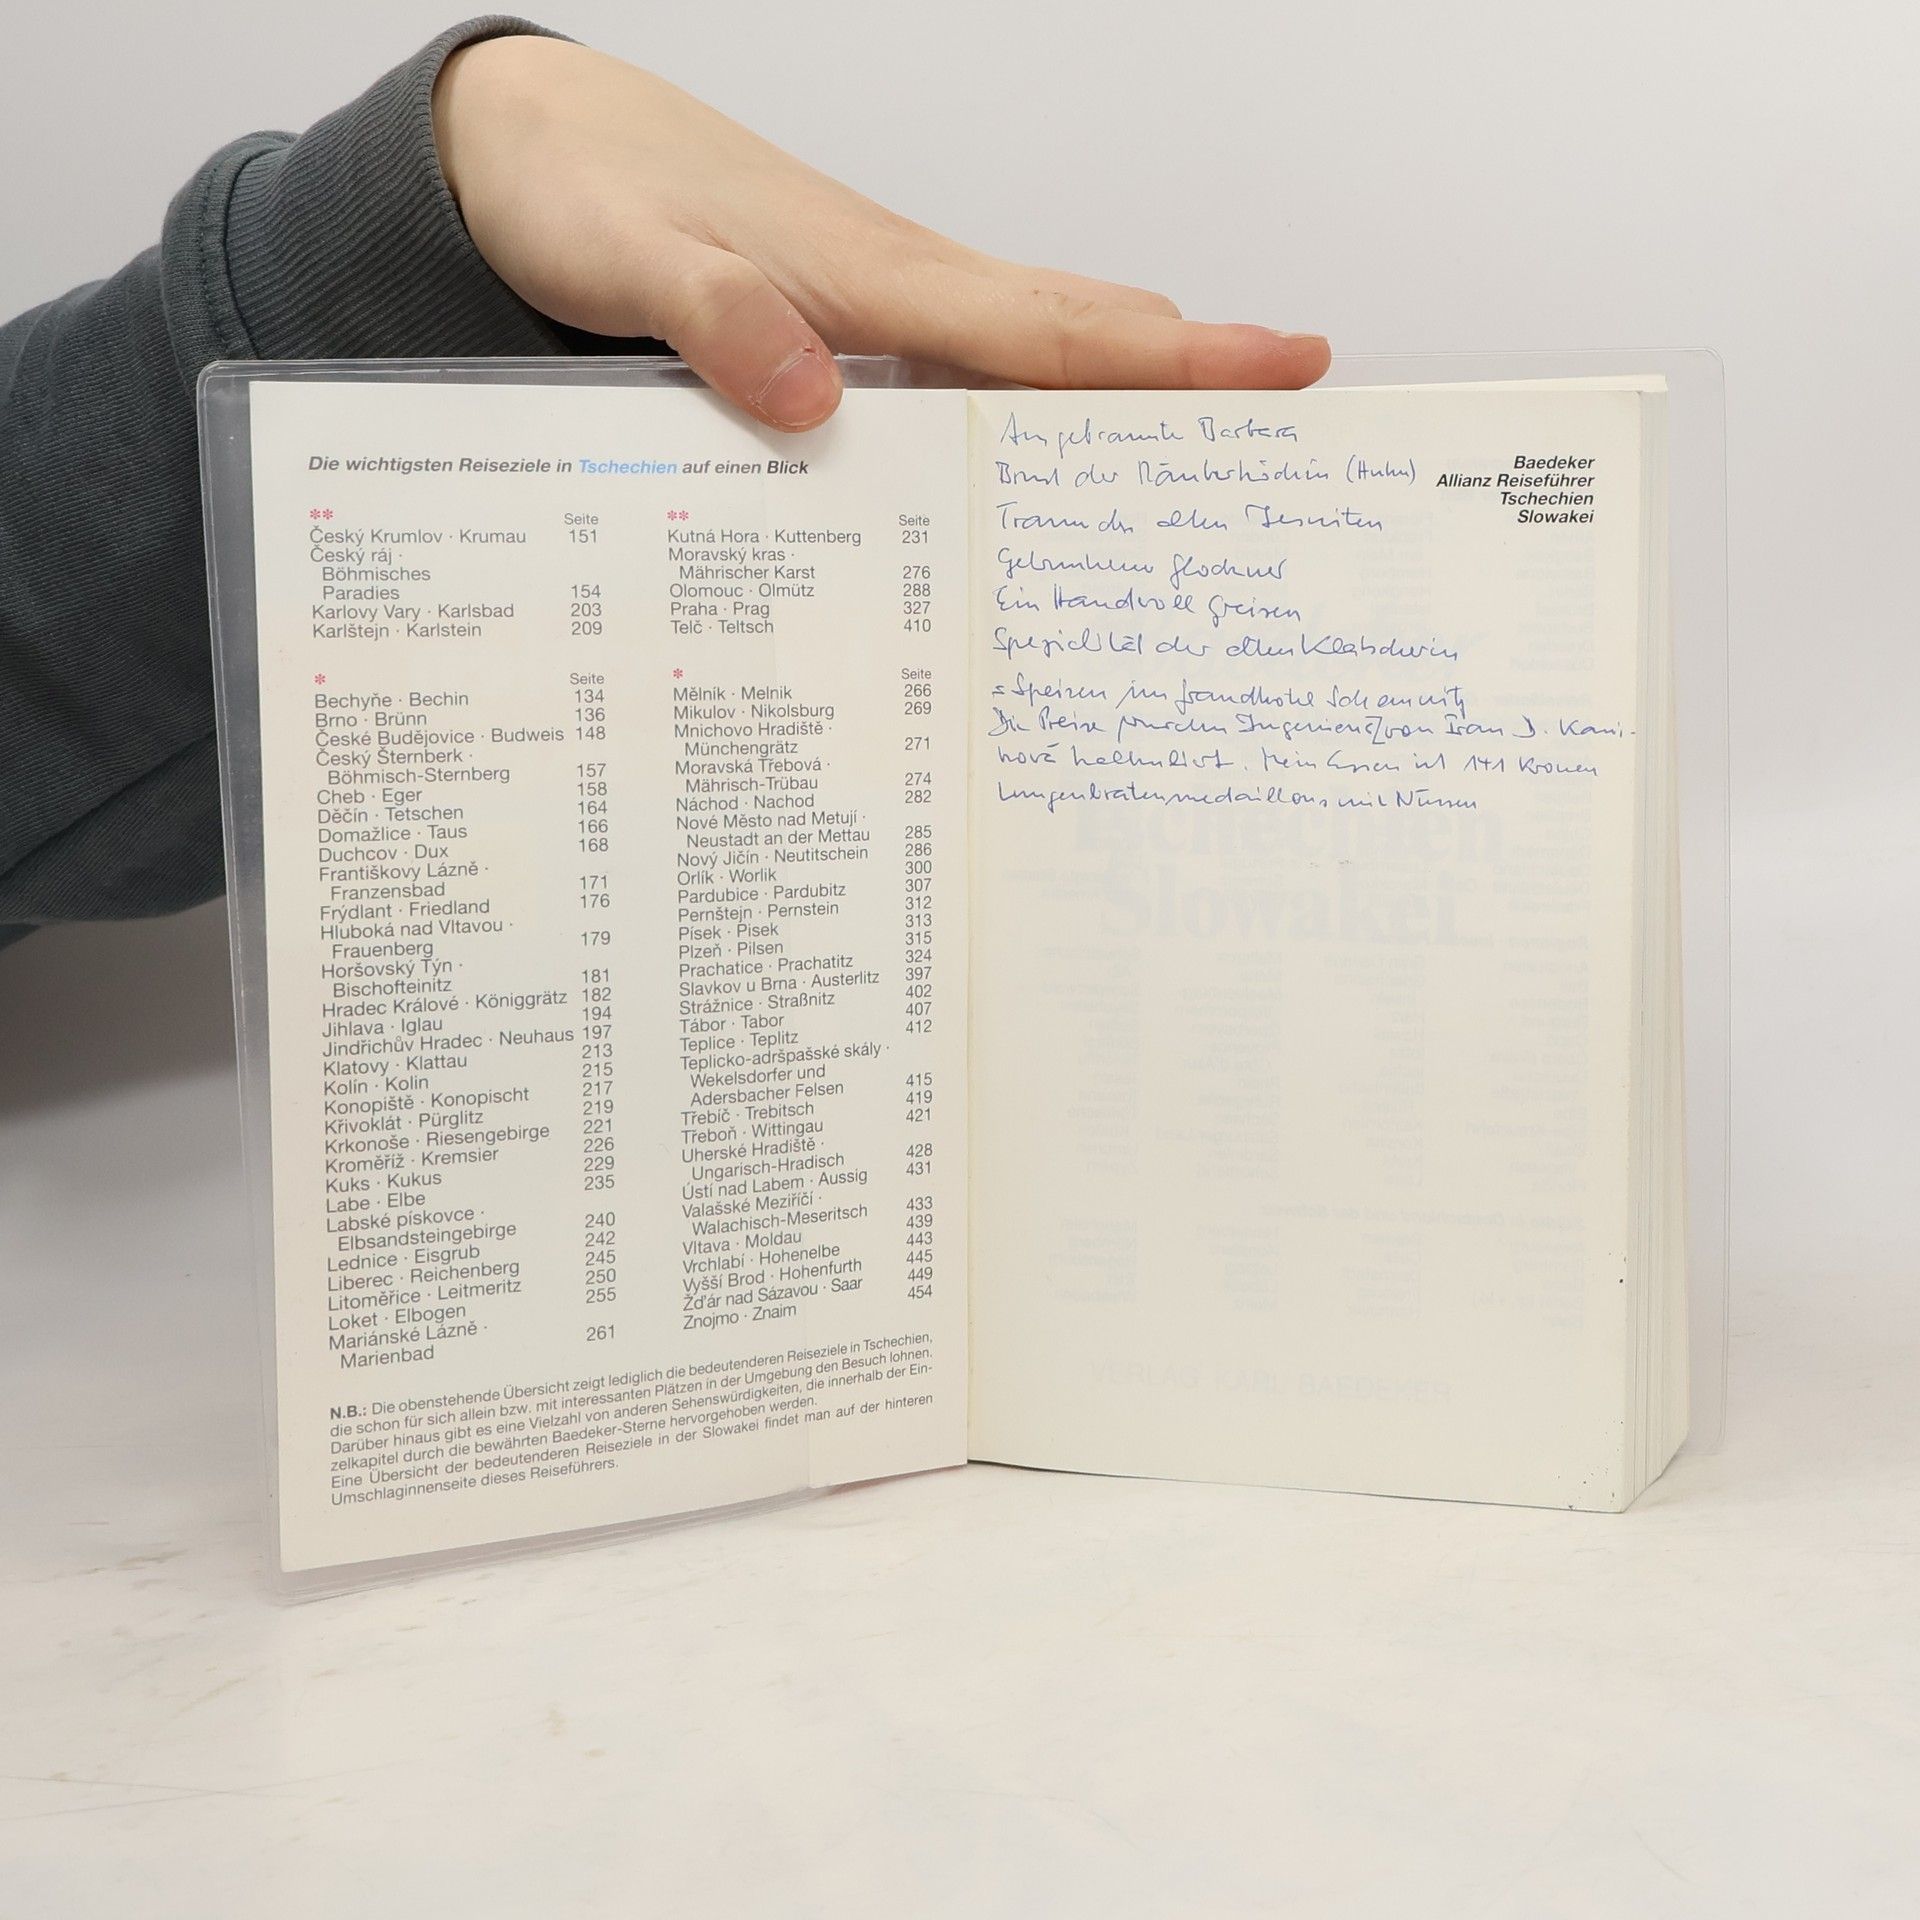 Die wichtigsten Reiseziele in Tschechien auf einen Blick
** Seite
Český Krumlov · Krumau 151
Český ráj ·
Böhmisches
Paradies 154
Karlovy Vary · Karlsbad 203
Karlštejn · Karlstein 209
** Seite
Kutná Hora · Kuttenberg 231
Moravský kras ·
Mährischer Karst 276
Olomouc · Olmütz 288
Praha · Prag 327
Telč · Teltsch 410
* Seite
Bechyňe · Bechin 134
Brno · Brünn 136
České Budějovice · Budweis 148
Český Šternberk ·
Böhmisch-Sternberg 157
Cheb · Eger 158
Děčín · Tetschen 164
Domažlice · Taus 166
Duchcov · Dux 168
Františkovy Lázně ·
Franzensbad 171
Frýdlant · Friedland 176
Hluboká nad Vltavou ·
Frauenberg 179
Horšovský Týn ·
Bischofteinitz 181
Hradec Králové · Königgrätz 182
Jihlava · Iglau 194
Jindřichův Hradec · Neuhaus 197
Klatovy · Klattau 213
Kolín · Kolin 215
Konopiště · Konopischt 217
Křivoklát · Pürglitz 219
Krkonoše · Riesengebirge 221
Kroměříž · Kremsier 226
Kuks · Kukus 229
Labe · Elbe 235
Labské pískovce ·
Elbsandsteingebirge 240
Lednice · Eisgrub 242
Liberec · Reichenberg 245
Litoměřice · Leitmeritz 250
Loket · Elbogen 255
Mariánské Lázně ·
Marienbad 261
* Seite
Mělník · Melnik 266
Mikulov · Nikolsburg 269
Mnichovo Hradiště ·
Münchengrätz 271
Moravská Třebová ·
Mährisch-Trübau 274
Náchod · Nachod 282
Nové Město nad Metují ·
Neustadt an der Mettau 285
Nový Jičín · Neutitschein 286
Orlík · Worlik 300
Pardubice · Pardubitz 307
Pernštejn · Pernstein 312
Písek · Pisek 313
Plzeň · Pilsen 315
Prachatice · Prachatitz 324
Slavkov u Brna · Austerlitz 397
Strážnice · Straßnitz 402
Tábor · Tabor 407
Teplice · Teplitz 412
Teplicko-adršpašské skály ·
Wekelsdorfer und
Adersbacher Felsen 415
Třebíč · Trebitsch 419
Třeboň · Wittingau 421
Uherské Hradiště ·
Ungarisch-Hradisch 428
Ústí nad Labem · Aussig 431
Valašské Meziříčí ·
Walachisch-Meseritsch 433
Vltava · Moldau 439
Vrchlabí · Hohenelbe 443
Vyšší Brod · Hohenfurth 445
Žďár nad Sázavou · Saar 449
Znojmo · Znaim 454
N.B.: Die obenstehende Übersicht zeigt lediglich die bedeutenderen Reiseziele in Tschechien,
die schon für sich allein bzw. mit interessanten Plätzen in der Umgebung den Besuch lohnen.
Darüber hinaus gibt es eine Vielzahl von anderen Sehenswürdigkeiten, die innerhalb der Ein-
zelkapitel durch die bewährten Baedeker-Sterne hervorgehoben werden.
Eine Übersicht der bedeutenderen Reiseziele in der Slowakei findet man auf der hinteren
Umschlaginnenseite dieses Reiseführers.
Angebrannte Barbara
Brust der Räuberköchin (Huhn)
Traum des alten Jesuiten
Gebrunkener Glöckner
Ein Handvoll Greisen
Spezialität der alten Klatscherin
= Speisen im Grandhotel Schemnitz
Die Preise wurden von Frau D. Kani-
ková kalkuliert. Mein Essen ist 141 Kronen
Lungenbratenmedaillons mit Nüssen
Baedeker
Allianz Reiseführer
Tschechien
Slowakei